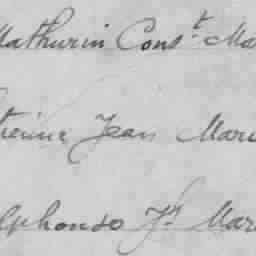 Mathurin Const Ma
therine Jean Mari
lphonso Jh Mar